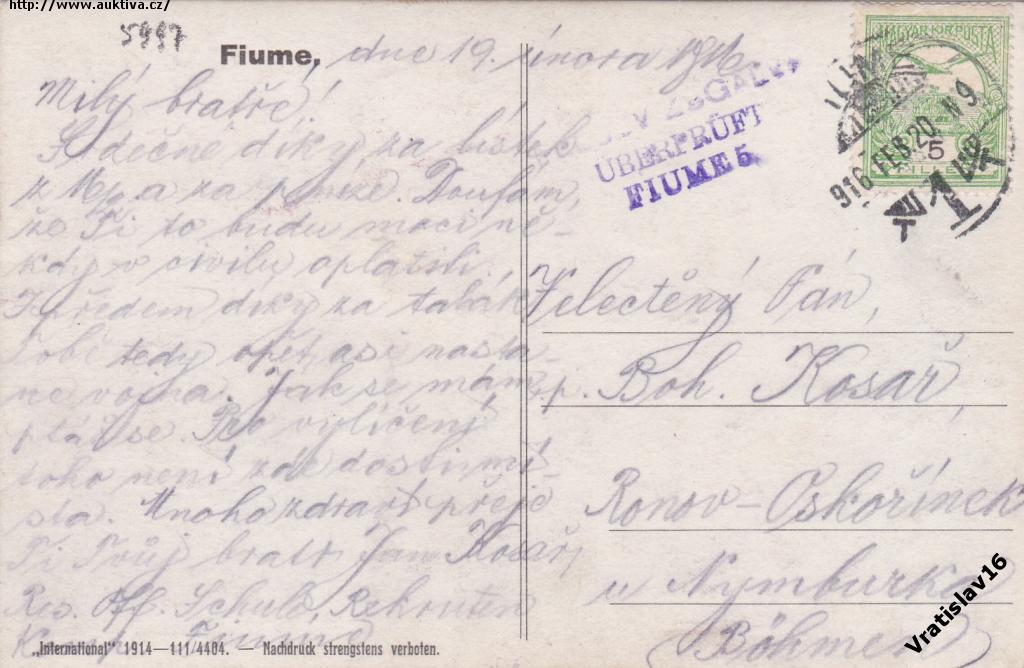 http://www.auktiva.cz/
5997
Fiume, dne 19. února 1916.
Milý bratře!
Srdečné díky za lístek
z a za peníze. Doufám,
že Ti to budu moci ně-
kdy v civilu oplatiti.
Předem díky za tabák
Tobě tedy opět asi nasta-
ne vojna. Jak se mám
ptáš se. Pro vylíčení
toho není zde dosti mí-
sta. Mnoho zdraví přeje
Ti Tvůj bratr Jan Kosař,
Res. Off. Schule, Rekruten
Fiume
"International" 1914—111/4404. — Nachdruck strengstens verboten.
ÜBERPRÜFT
FIUME 5
MAGYAR KIR. POSTA
5
FILLÉR
916 FEB. 20. N 9
Velectěný Pán,
p. Boh. Kosař,
Ronov-Oskořínek
u Nymburka
(Böhmen)
Vratislav16